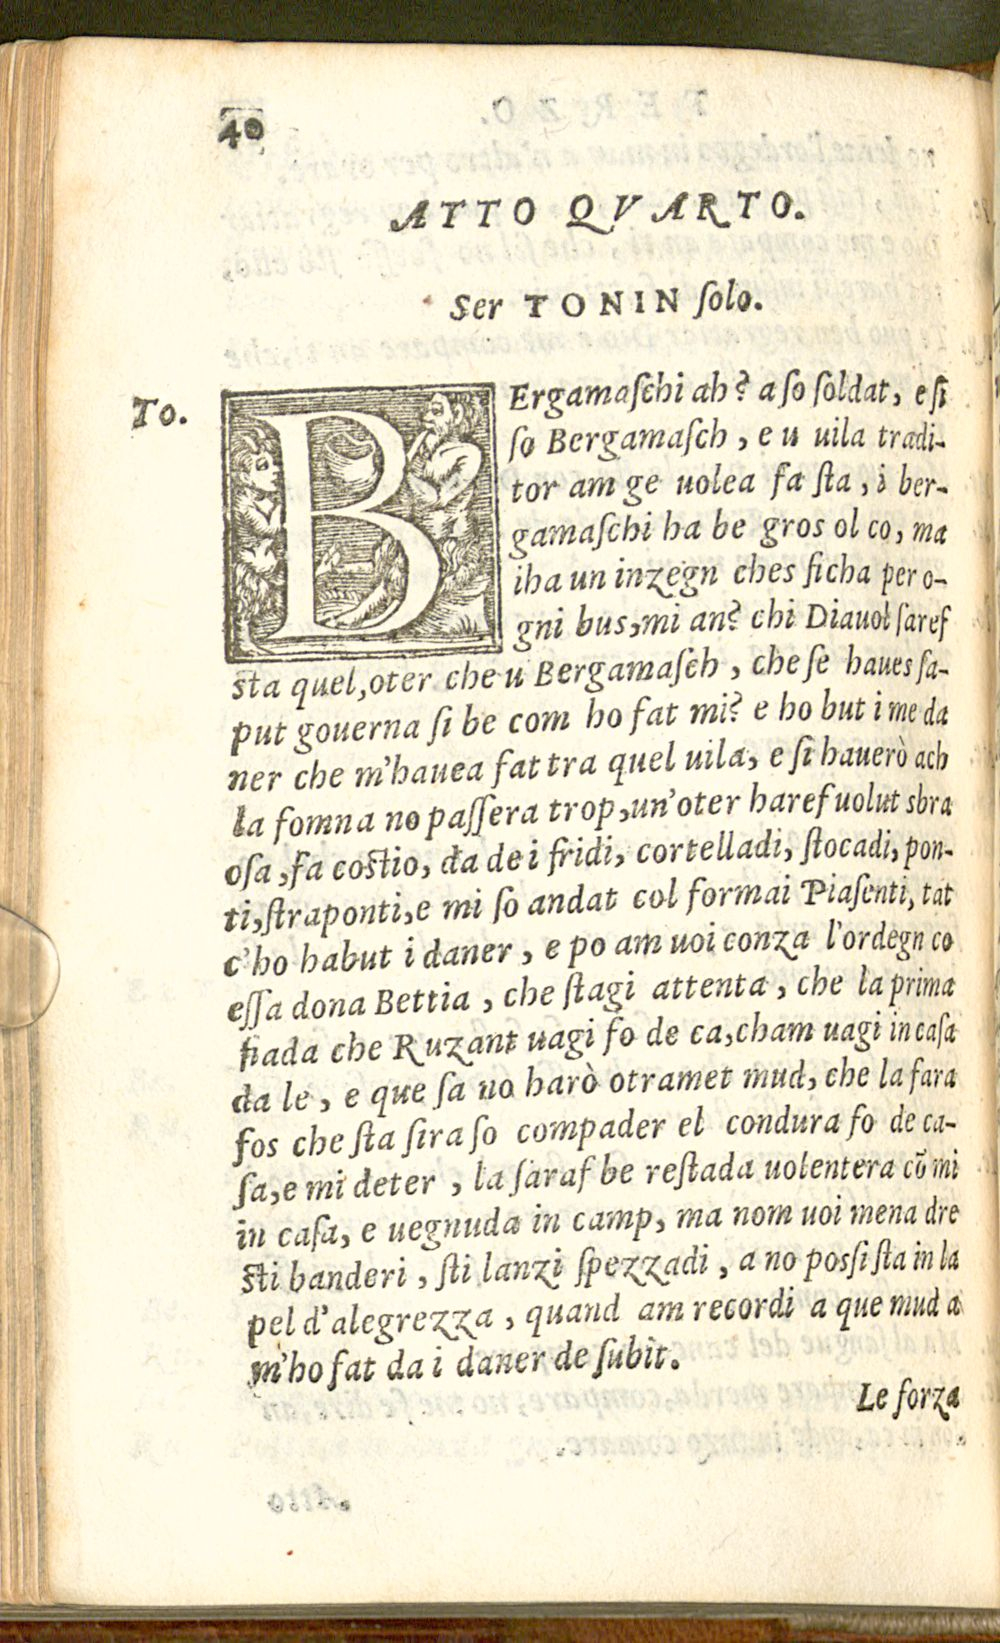 40
ATTO QVARTO.
Ser TONIN ſolo.
To. BErgamaſchi ah? a ſo ſoldat, e ſi
ſo Bergamaſch, e u uila tradi-
tor am ge uolea fa ſta, i ber-
gamaſchi ha be gros ol co, ma
iha un inzegn ches ficha per o-
gni bus, mi an? chi Diauol ſaref
ſta quel, oter che u Bergamaſch, che ſe haues ſa-
put gouerna ſi be com ho fat mi? e ho but i me da
ner che m'hauea fat tra quel uila, e ſi hauerò ach
la fomna no paſſera trop, un'oter haref uolut sbra
oſa, fa coſtio, da de i fridi, cortelladi, ſtocadi, pon-
ti, ſtraponti, e mi ſo andat col formai Piaſenti, tat
c'ho habut i daner, e po am uoi conza l'ordegn co
eſſa dona Bettia, che ſtagi attenta, che la prima
fiada che Ruzant uagi fo de ca, cham uagi in caſa
da le, e que ſa no harò otramet mud, che la fara
fos che ſta ſira ſo compader el condura fo de ca-
ſa, e mi deter, la ſaraf be reſtada uolentera cō mi
in caſa, e uegnuda in camp, ma nom uoi mena dre
ſti banderi, ſti lanzi ſpezzadi, a no poſsi ſta in la
pel d'alegrezza, quand am recordi a que mud a
m'ho fat da i daner de ſubit.
Le forza